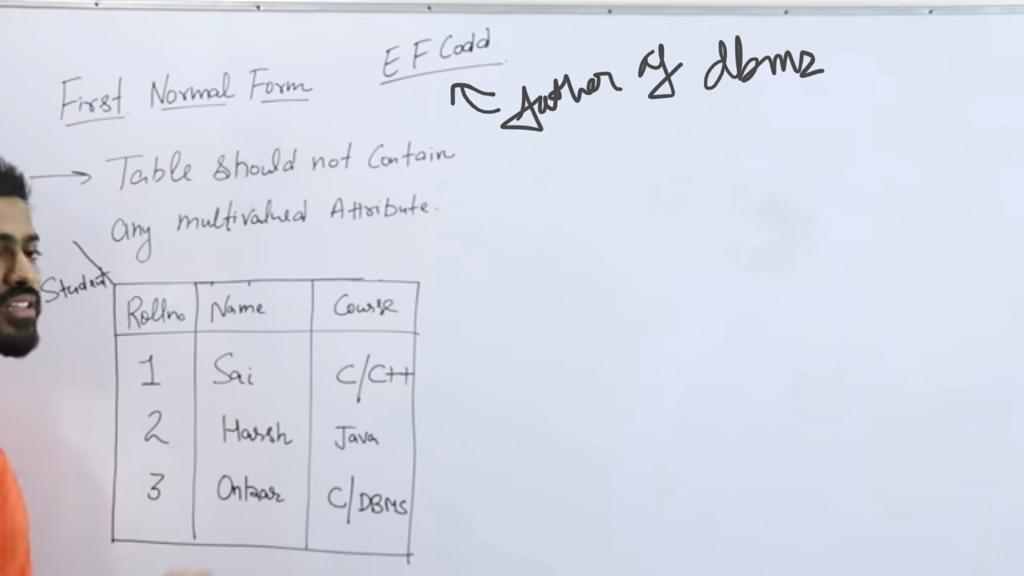 First Normal Form
E F Codd
father of dbmz
→ Table should not Contain
any multivalued Attribute.
Student
Rollno Name Course
1 Sai C/C++
2 Harsh Java
3 Onkar C/DBMS